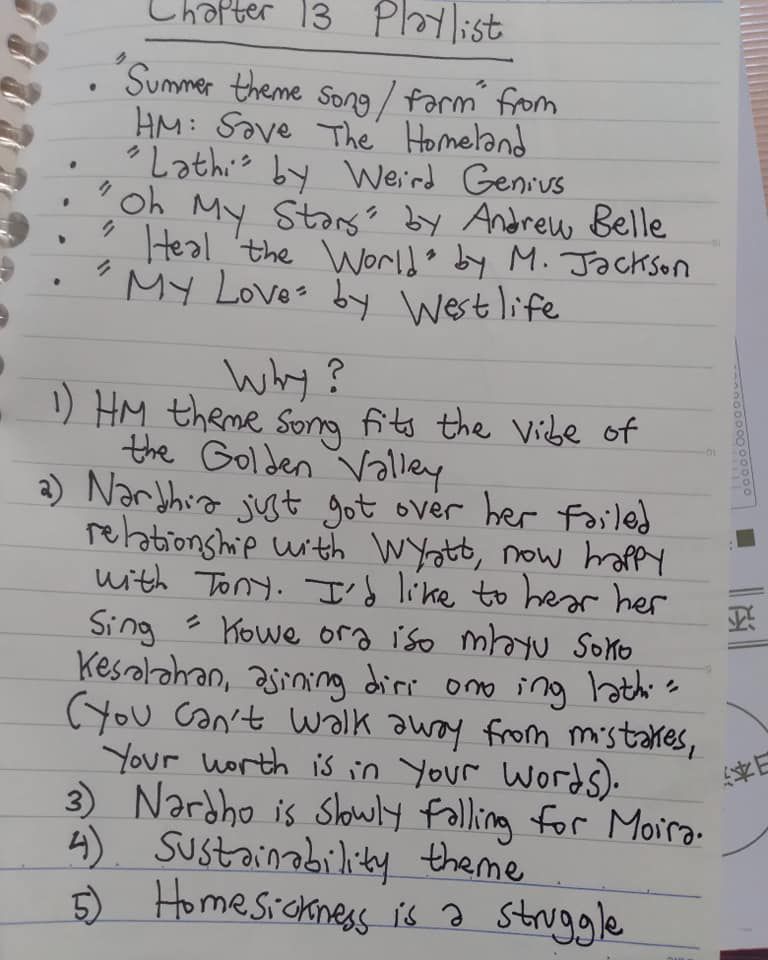 Chapter 13 Playlist
• "Summer theme song / farm" from
HM: Save The Homeland
• "Lathi" by Weird Genius
• "Oh My Stars" by Andrew Belle
• "Heal the World" by M. Jackson
• "My Love" by Westlife
Why?
1) HM theme song fits the vibe of
the Golden Valley
2) Nardhia just got over her failed
relationship with Wyatt, now happy
with Tony. I'd like to hear her
sing "Kowe ora iso mlayu soko
kesalahan, ajining diri ono ing lathi"
(You can't walk away from mistakes,
your worth is in your words).
3) Nardho is slowly falling for Moira.
4) Sustainability theme
5) Homesickness is a struggle
日本